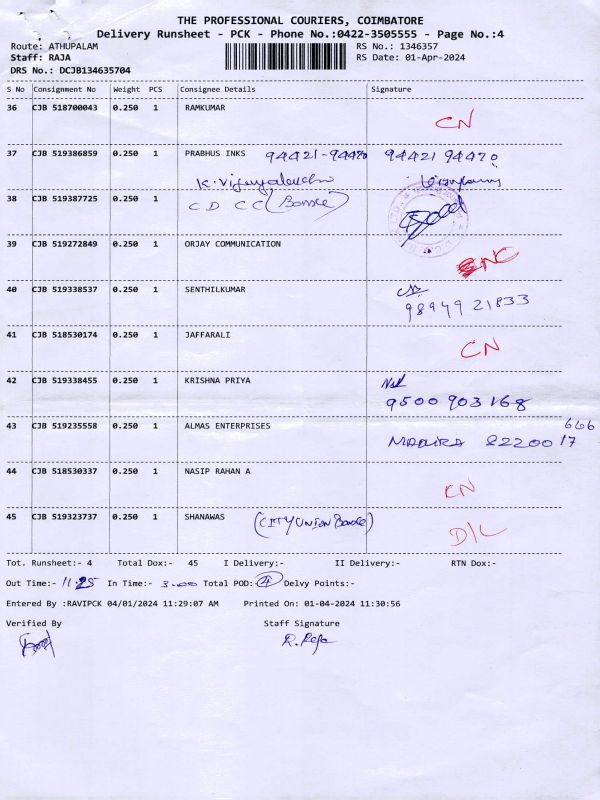 THE PROFESSIONAL COURIERS, COIMBATORE
Delivery Runsheet - PCK - Phone No.:0422-3505555 - Page No.:4
Route: ATHUPALAM RS No.: 1346357
Staff: RAJA RS Date: 01-Apr-2024
DRS No.: DCJB134635704
S No Consignment No Weight PCS Consignee Details Signature
36 CJB 518700043 0.250 1 RAMKUMAR CN
37 CJB 519386859 0.250 1 PRABHUS INKS 94421-94470 94421 94470
38 CJB 519387725 0.250 1 CD CC
39 CJB 519272849 0.250 1 ORJAY COMMUNICATION
40 CJB 519338537 0.250 1 SENTHILKUMAR
98949 21833
41 CJB 518530174 0.250 1 JAFFARALI CN
42 CJB 519338455 0.250 1 KRISHNA PRIYA
9500 903 168
43 CJB 519235558 0.250 1 ALMAS ENTERPRISES 666
82200 17
44 CJB 518530337 0.250 1 NASIP RAHAN A CN
45 CJB 519323737 0.250 1 SHANAWAS (CITY UNION Bank) D/L
Tot. Runsheet:- 4 Total Dox:- 45 I Delivery:- II Delivery:- RTN Dox:-
Out Time:- 11.25 In Time:- 3.00 Total POD: 4 Delvy Points:-
Entered By :RAVIPCK 04/01/2024 11:29:07 AM Printed On: 01-04-2024 11:30:56
Verified By Staff Signature
R. Raja